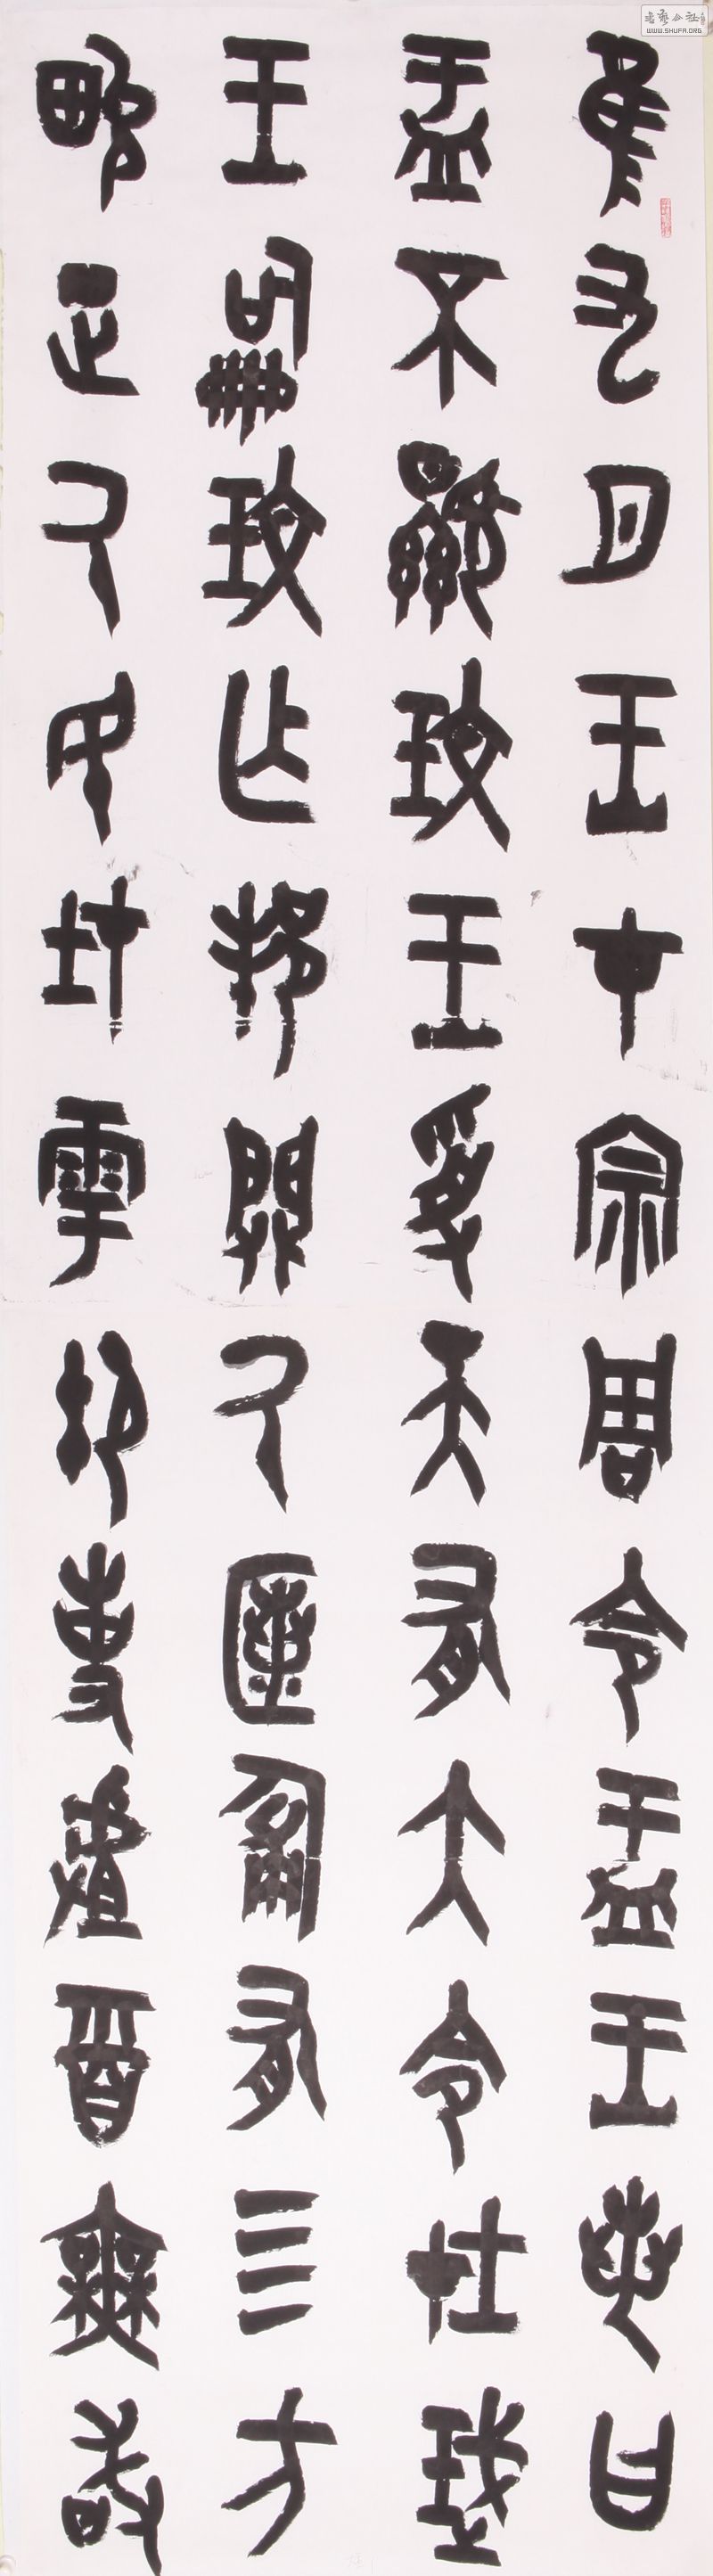 隹九月王才宗周令盂王若曰
盂不顯玟王受天有大令在珷
王嗣玟乍邦闢氒匿匍有四方
畯正氒民在雩御事䖒酉無敢
WWW.SHUFA.ORG